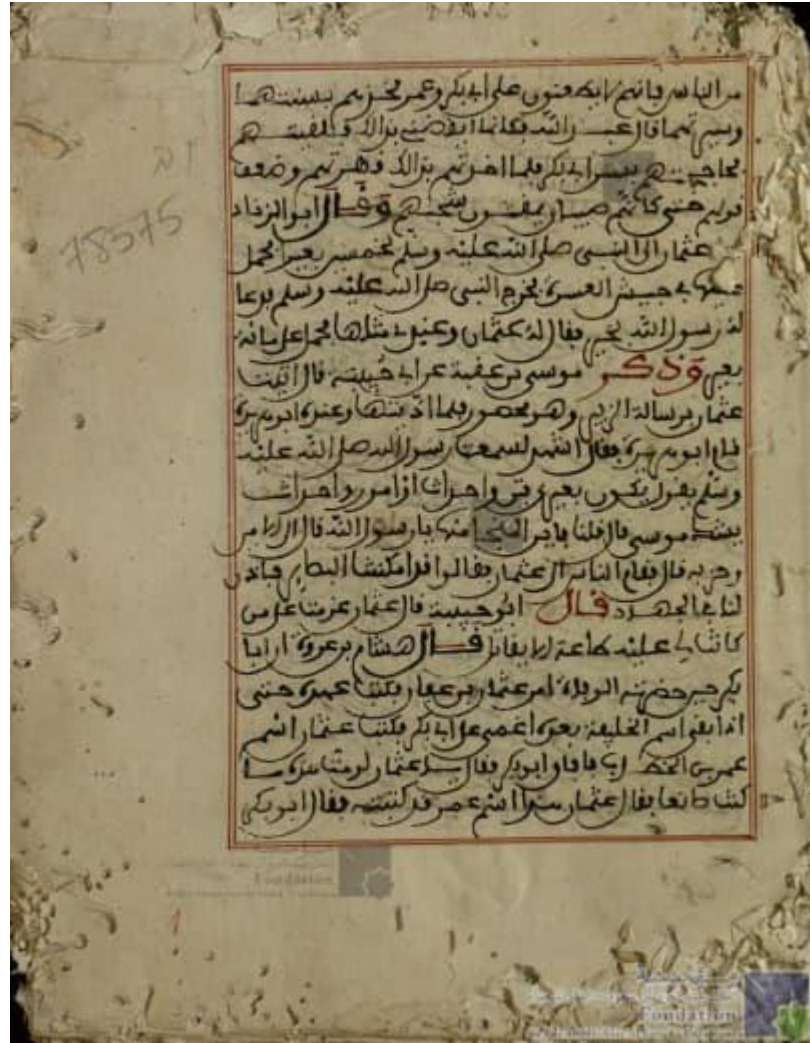 من الناس فانهم لا يطعنون على ابي بكر وعمر نخزيهم بسنتهما
وسيرتهما قال عبد الله فكانما ايقضني بذلك فلقيتهم
فحاججتهم بسير ابي بكر فلما اخذتهم بذلك قهرتهم وضعف
قولهم حتى كانهم صبيان يمغثون سخبهم وقال ابو الزناد
عثمان الى النبي صلى الله عليه وسلم بخمسين بعيرا فحمل
عليها في جيش العسرة فخرج النبي صلى الله عليه وسلم فدعا
له رسول الله بخير فقال له عثمان وعندي مثلها فحمل على مائة
بعير وذكر موسى بن عقبة عن ابي حبيبة قال اتيت
عثمان برسالة الزبير وهو محصور فلما اديتها وعنده ابو هريرة
قام ابو هريرة فقال اشهد لسمعت رسول الله صلى الله عليه
وسلم يقول يكون بعدي فتن واحداث او امور واحداث
يشك موسى قال قلنا فاين النجا منها يا رسول الله قال الى الامير
وحزبه قال فقام الناس الى عثمان فقالوا قد امكنتنا البصاير فاذن
لنا في الجهاد قال ابو حبيبة قال عثمان عزمت على من
كانت لي عليه طاعة الا يقاتل قال هشام بن عروة ان ابا
بكر حين حضرته الوفاة امر عثمان بن عفان بكتب عهده حتى
اذا بقي اسم الخليفة بعده اغمي على ابي بكر فكتب عثمان اسم
عمر بن الخطاب فافاق ابو بكر فقال
كتب فقال عثمان اسم عمر قد كتبته فقال ابو بكر
78575
1
Foundation
Foundation